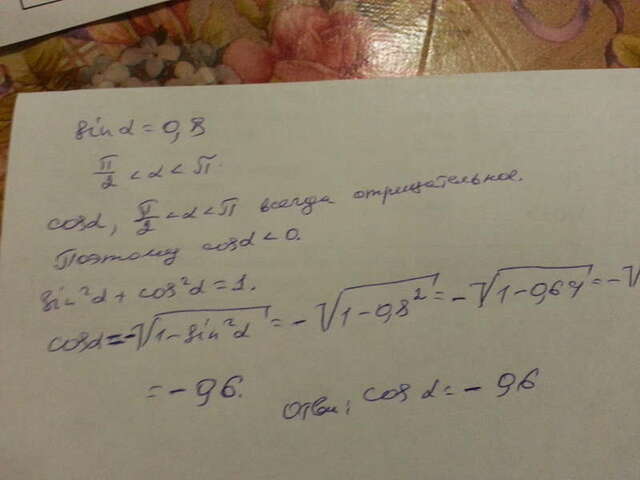 sin α = 0,8
π/2 < α < π.
cosα, π/2 < α < π всегда отрицательное.
Поэтому cosα < 0.
sin²α + cos²α = 1.
cosα = -√(1-sin²α) = -√(1-0,8²) = -√(1-0,64) = -√
= -0,6.
Ответ: cos α = -0,6